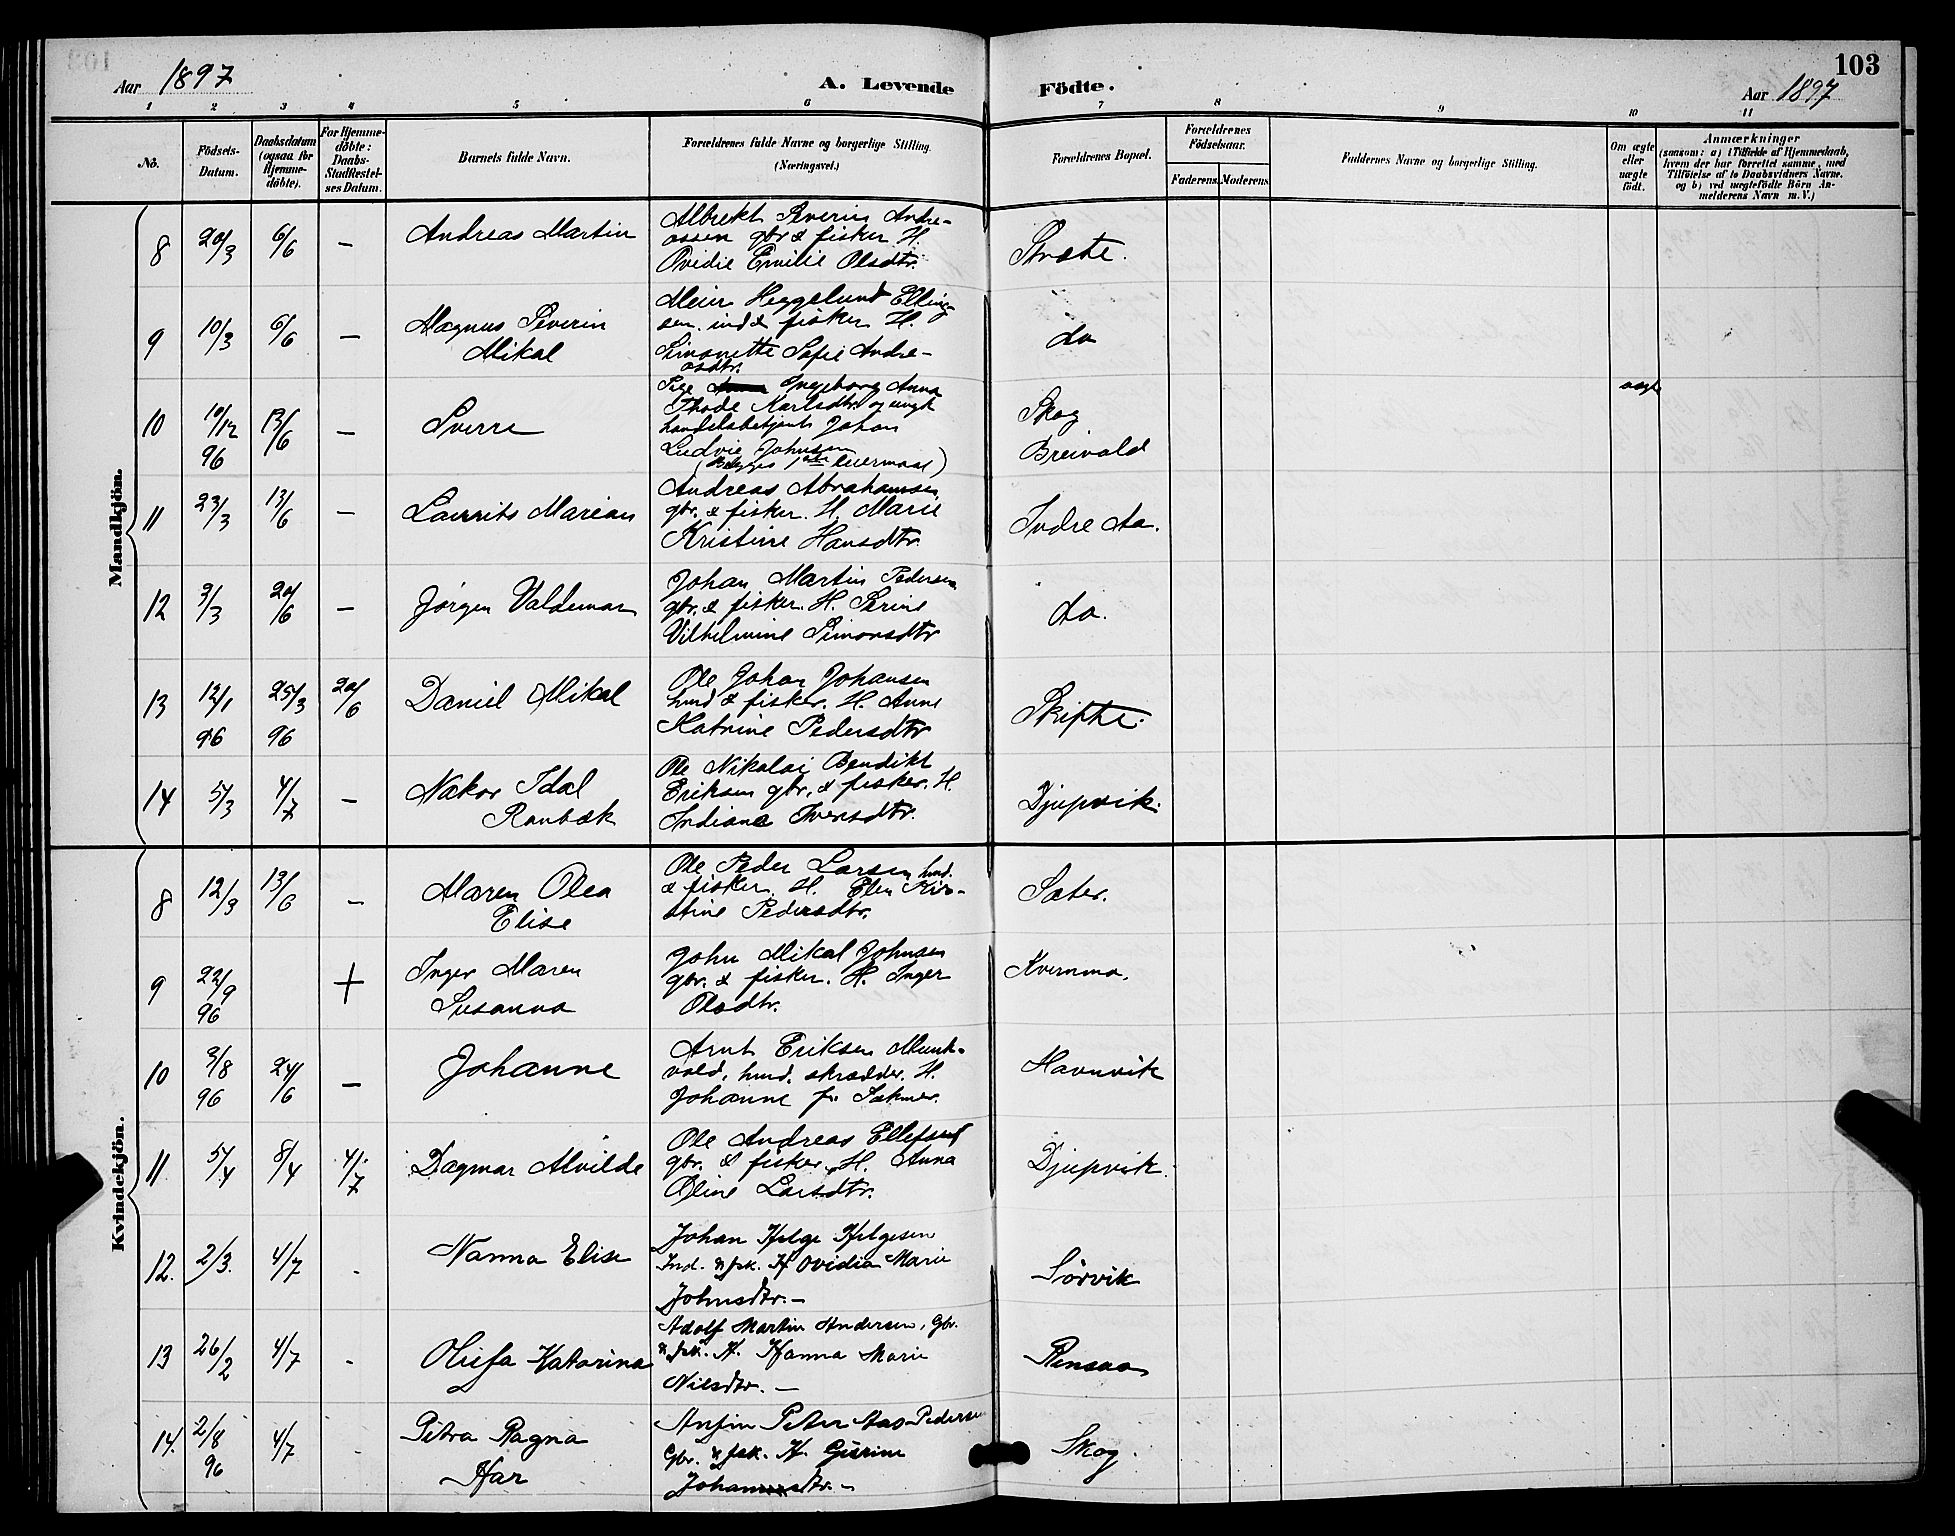 103
Aar 1897
A. Levende Födte.
Aar 1897
1 2 3 4 5 6 7 8 9 10 11
No.
Födsels-Datum.
Daabsdatum (ogsaa for Hjemme-döbte).
For Hjemme-döbte: Daabs-Stadfæstel-ses Datum.
Barnets fulde Navn.
Forældrenes fulde Navne og borgerlige Stilling. (Næringsvei.)
Forældrenes Bopæl.
Forældrenes Födselsaar.
Faderens. Moderens.
Faddernes Navne og borgerlige Stilling.
Om ægte eller uægte födt.
Anmærkninger
(saasom: a) i Tilfælde af Hjemmedaab,
hvem der har forrettet samme, med
Tilföielse af to Daabsvidners Navne.
og b) ved uægtefödte Börn An-
melderens Navn m.V.)
Mandkjön.
8 20/3 6/6 – Andreas Martin
Albrekt Severin Andre-
assen gbr & fisker H.
Ovidie Emilie Olsdtr.
Stræte.
9 10/3 6/6 – Magnus Severin
Mikal
Meier Heggelund Elling-
sen. ind & fisker H.
Simonette Sofie Andre-
asdtr.
do
10 10/12 96 13/6 – Sverre
Pige Ingeborg Anna
Thode Karlsdtr. og ungk
handelsbetjent Johan
Ludvig Johnsen
(Begges 1ste leiermaal)
Skog
Breivold
uægte
11 23/3 13/6 – Laurits Marian
Andreas Abrahamsen
gbr. & fisker. H. Marie
Kristine Hansdtr.
Indre Aa.
12 3/3 20/6 – Jørgen Valdemar
Johan Martin Pedersen
gbr. & fisker. H. Serine
Vilhelmine Simonsdtr
do.
13 12/1 96 25/3 96 20/6 Daniel Mikal
Ole Johan Johansen
hmd & fisker. H. Anne
Katrine Pedersdtr
Skipte.
14 5/3 4/7 – Hakor Idal
Ranbæk
Ole Nikolai Bendikt
Eriksen gbr. & fisker. H.
Indiane Iversdtr.
Djupvik.
Kvindekjön.
8 12/3 13/6 – Maren Olea
Elise
Ole Peder Larsen hmd.
& fisker. H. Elen Kir-
stine Pedersdtr.
Sæter.
9 22/9 96 + Inger Maren
Susanna
John Mikal Johnsen
gbr. & fisker. H. Inger
Olsdtr.
Kvernmo.
10 3/8 96 24/6 – Johanne
Arnt Eriksen Munk-
vold, hmd. skrædder. H.
Johanne f.
Havnvik
11 5/4 8/4 4/7 Dagmar Alvilde
Ole Andreas Ellefsen
gbr. & fisker. H. Anna
Oline Larsdtr.
Djupvik.
12. 2/3. 4/7 - Nanna Elise
Johan Helge Helgesen
Ind. & fsk. H Ovidia Marie
Johnsdtr. –
Sörvik
13 26/2 4/7 - Olufa Katarina
Adolf Martin Andersen, Gbr.
& fsk. H. Hanna Marie
Nilsdtr. –
Rensaa
14. 2/8 96 4/7 - Petra Ragna
Har
Anfin Peter Aas Pedersen
Gbr. & fsk. H.
Skog.